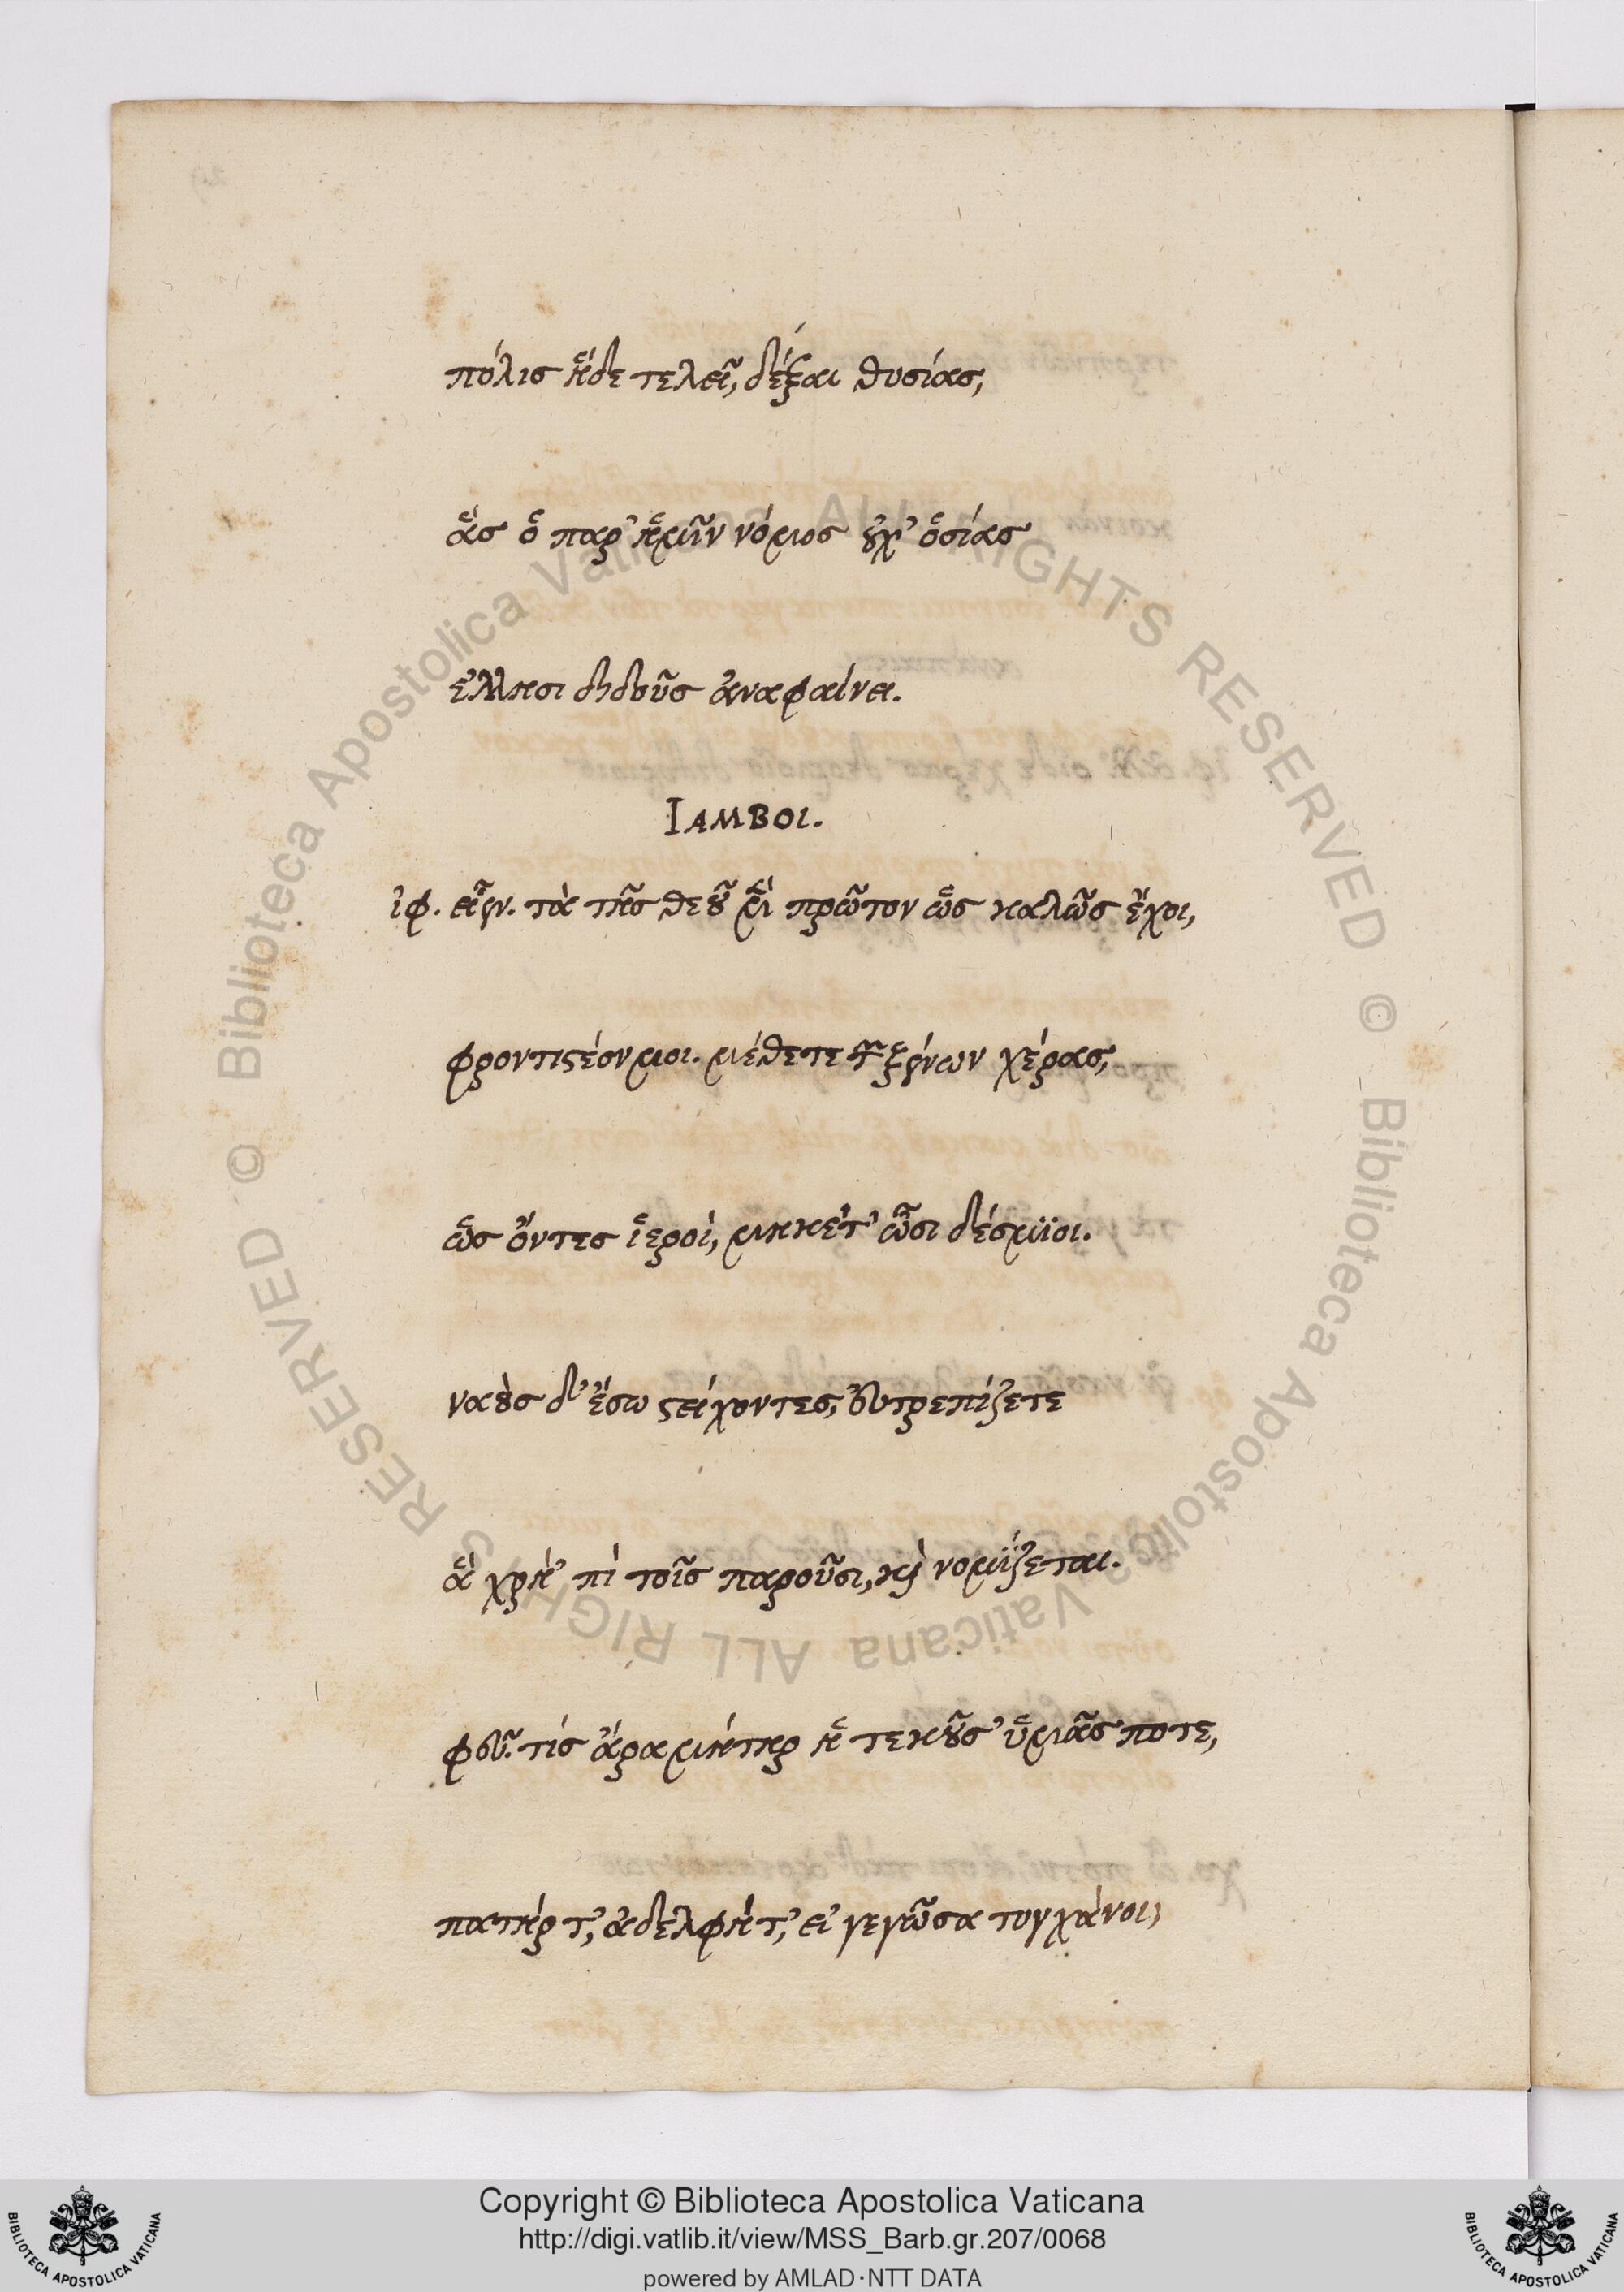 πόλις ἥδε τελεῖ, δέξαι θυσίας,
ἃς ὁ παρ' ἡμῖν νόμος οὐχ' ὁσίας
ἕλλησι διδοὺς ἀναφαίνει.
ΙΑΜΒΟΙ.
ἰφ. εἶεν. τὰ τῆς θεοῦ μὲν πρῶτον ὡς καλῶς ἔχοι,
φροντιστέον μοι. μέθετε τῶν ξένων χέρας,
ὡς ὄντες ἱεροὶ, μηκέτ' ὦσι δέσμιοι.
ναοὺς δ' ἔσω στείχοντες, εὐτρεπίζετε
ἃ χρὴ 'πὶ τοῖς παροῦσι, καὶ νομίζεται.
φεῦ. τίς ἄρα μήτηρ ἡ τεκοῦσ' ὑμᾶς ποτε,
πατήρ τ', ἀδελφή τ', εἰ γεγῶσα τυγχάνοι,
Copyright © Biblioteca Apostolica Vaticana
http://digi.vatlib.it/view/MSS_Barb.gr.207/0068
powered by AMLAD·NTT DATA
BIBLIOTECA APOSTOLICA VATICANA
BIBLIOTECA APOSTOLICA VATICANA
© Biblioteca Apostolica Vaticana ALL RIGHTS RESERVED
© Biblioteca Apostolica Vaticana ALL RIGHTS RESERVED